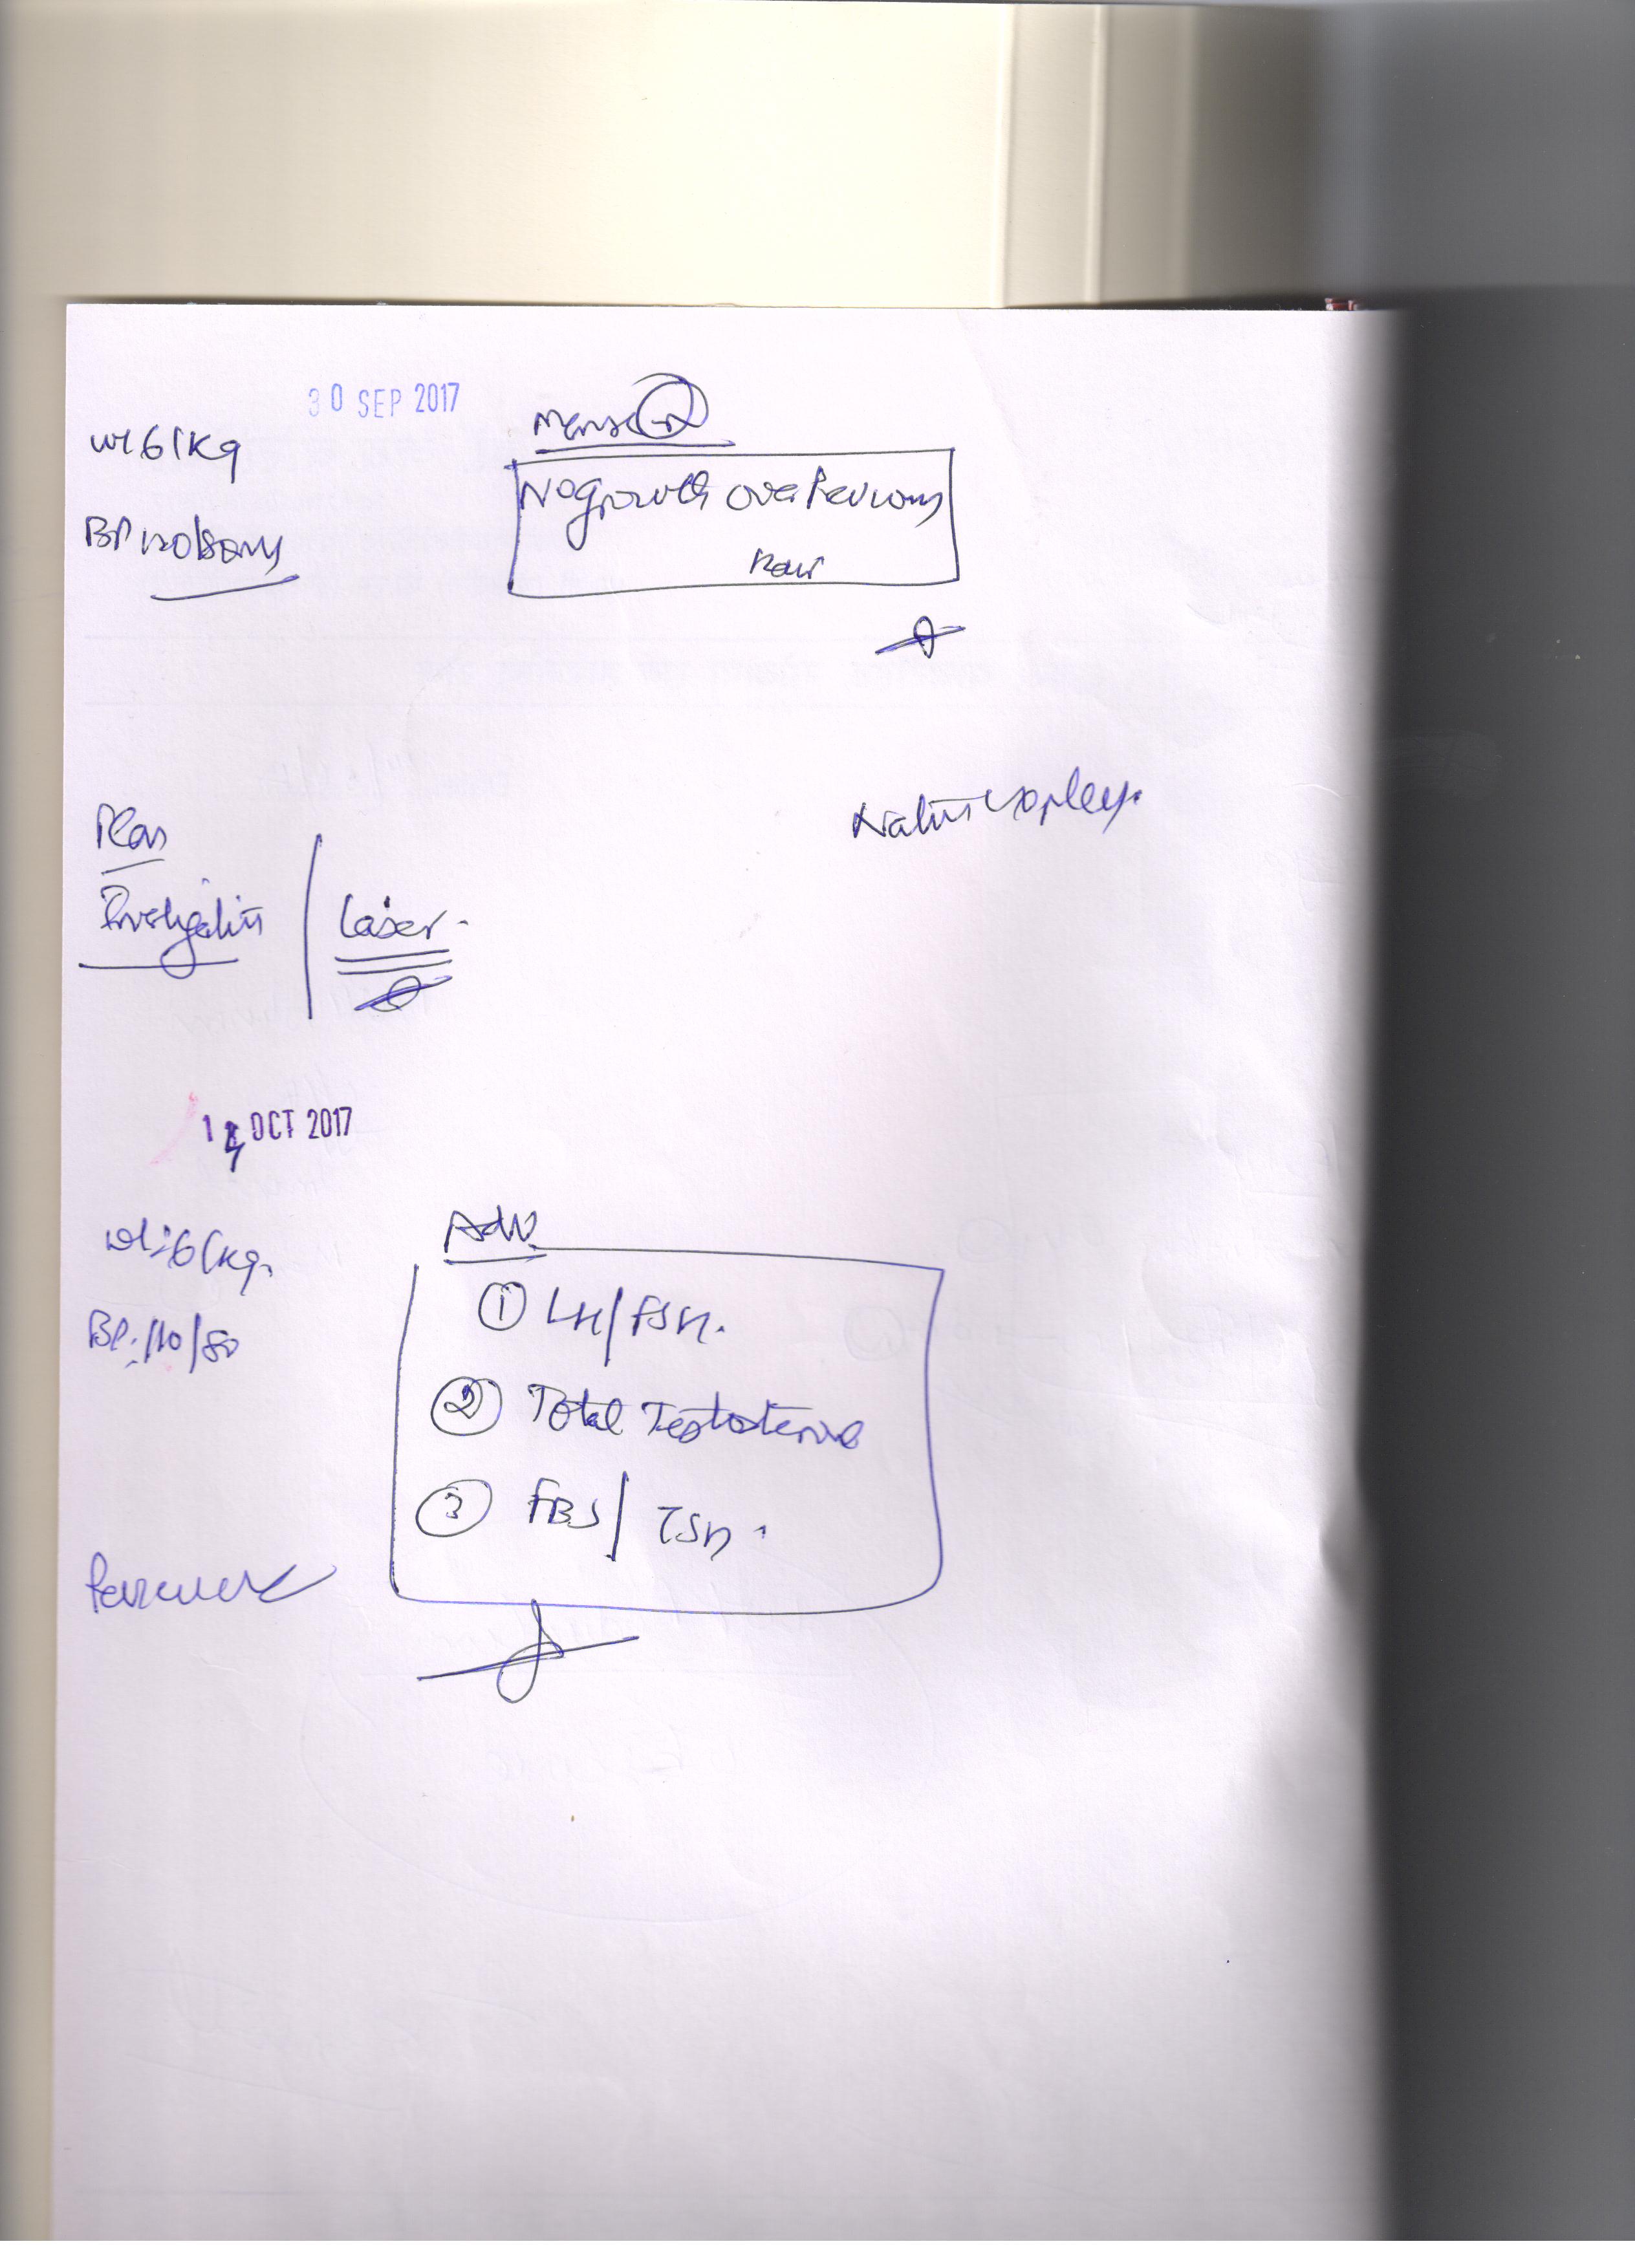 30 SEP 2017
Wt 61Kg
Mens (N)
BP 120/80
No growth over Previous
hair
Plan
Investigation / Laser.
14 OCT 2017
Wt: 61kg.
Adv
BP: 110/80
① LH/FSH.
② Total Testosterone
③ FBS/TSH.